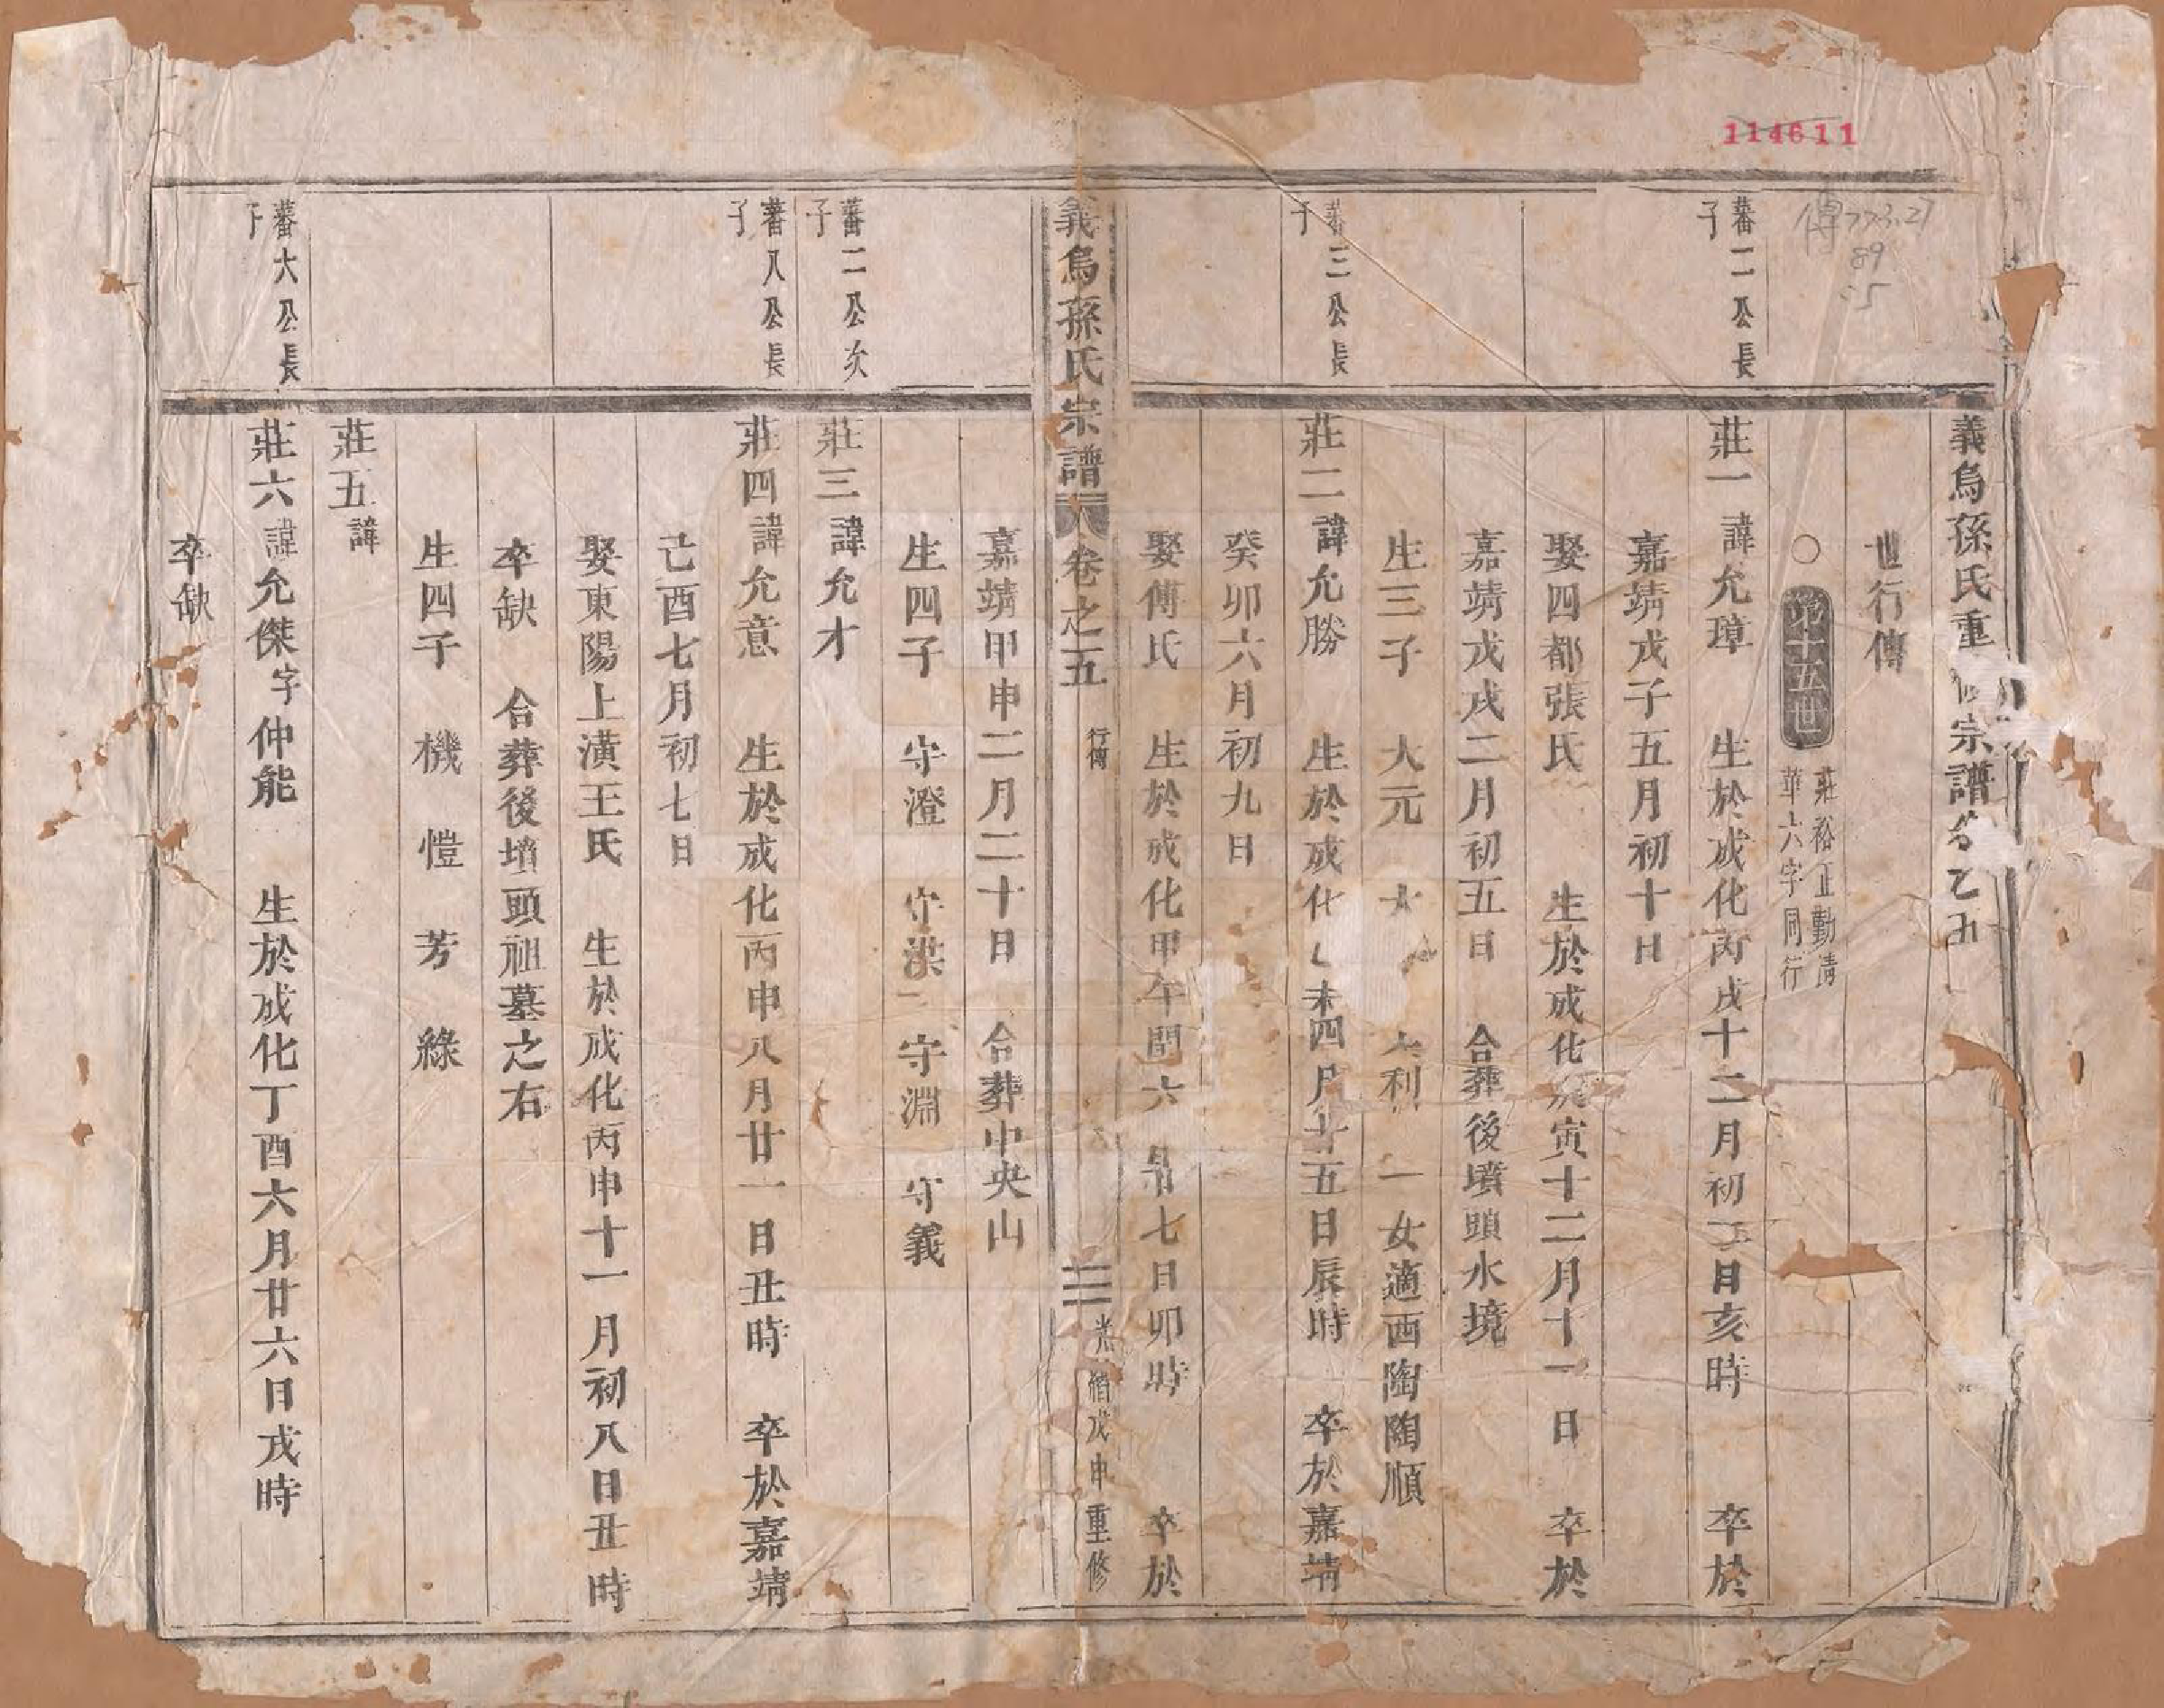 114611
傳773.27
89
:5
義烏孫氏重修宗譜卷之五
世行傳
○第十五世
莊裕正勤清
華六字同行
蕃一公長
子
莊一諱允璋 生於成化丙戌十二月初三日亥時 卒於
嘉靖戊子五月初十日
娶四都張氏 生於成化庚寅十二月十一日 卒於
嘉靖戊戌二月初五日 合葬後墳頭水境
生三子 大元 大 大利 一女適西陶陶順
蕃三公長
子
莊二諱允勝 生於成化乙未四月廿五日辰時 卒於嘉靖
癸卯六月初九日
娶傅氏 生於成化甲午閏六月廿七日卯時 卒於
義烏孫氏宗譜 卷之五 行傳 三 光緒戊申重修
嘉靖甲申二月二十日 合葬中央山
生四子 守澄 守洪 守淵 守義
蕃二公次
子
莊三諱允才
蕃八公長
子
莊四諱允意 生於成化丙申八月廿一日丑時 卒於嘉靖
己酉七月初七日
娶東陽上潢王氏 生於成化丙申十一月初八日丑時
卒缺 合葬後墳頭祖墓之右
生四子 機 愷 芳 綠
莊五諱
蕃六公長
子
莊六諱允傑字仲能 生於成化丁酉六月廿六日戌時
卒缺